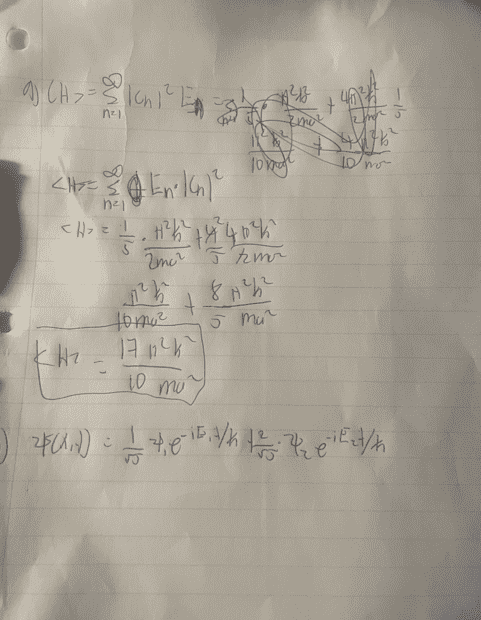 g) ⟨H⟩ = ∑_{n=1}^{∞} |Cn|² En = 1/5 · π²ħ²/2ma² + 4π²ħ²/2ma² 1/5
π²ħ²/10ma² + 4π²ħ²/10ma²
<H> = ∑_{n=1}^{∞} En · |Cn|²
<H> = 1/5 · π²ħ²/2ma² + 4/5 4π²ħ²/2ma²
π²ħ²/10ma² + 8/5 π²ħ²/ma²
<H> = 17/10 π²ħ²/ma²
) Ψ(x,t) = 1/√5 ψ₁e^{-iE₁t/ħ} + 2/√5 · ψ₂e^{-iE₂t/ħ}